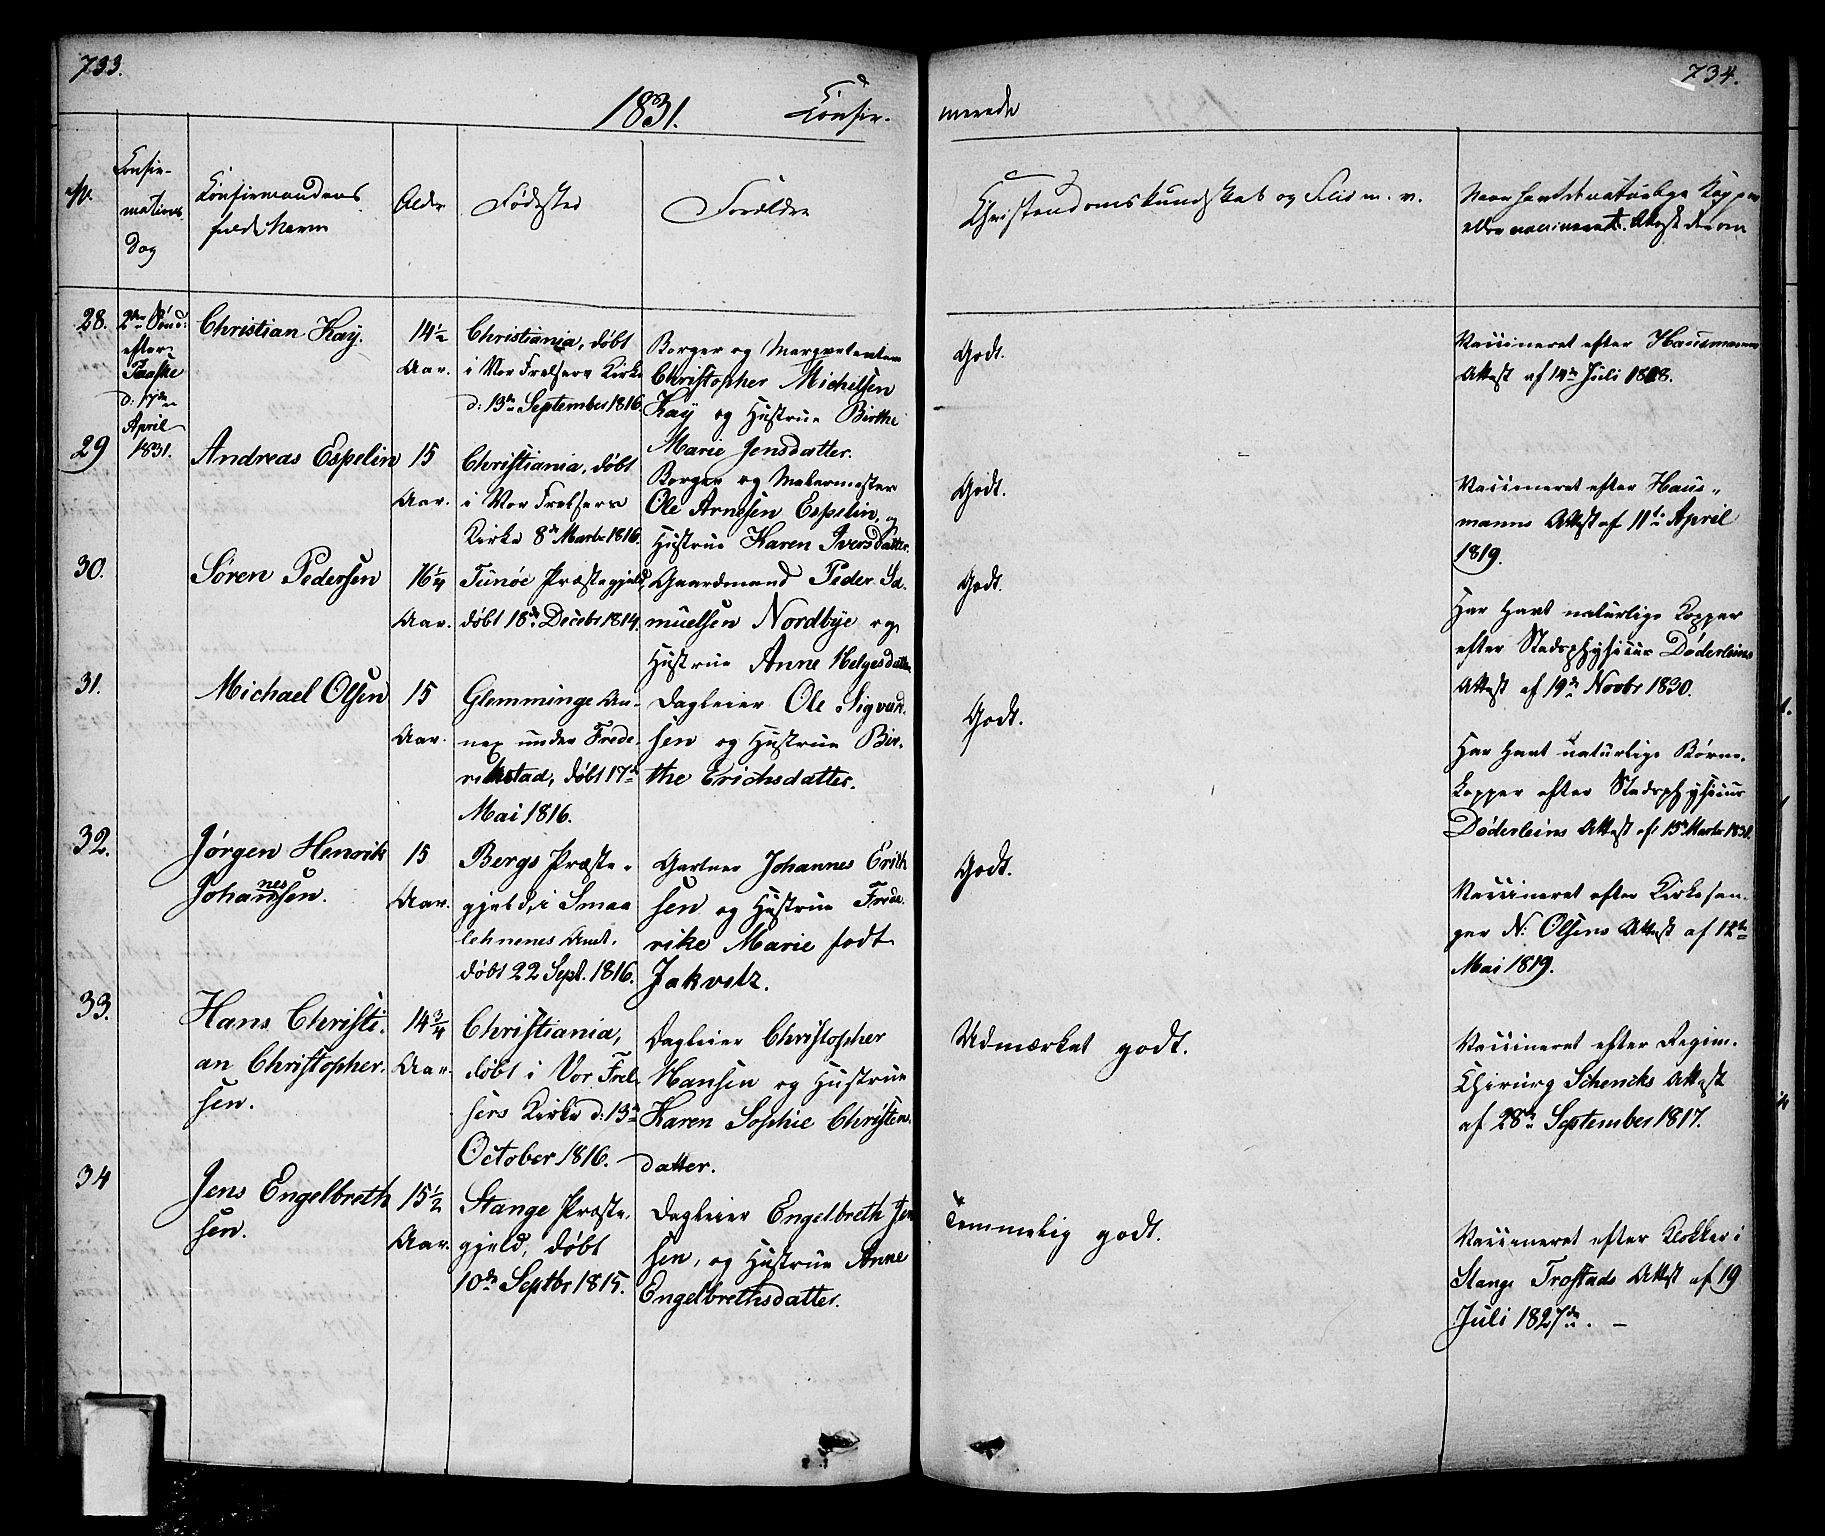 733.
734.
1831. Confir-
merede
No.
Confir-
mations
Dag
Confirmandens
fulde Navn
Alder
Fødested
Forældre
Christendomskundskab og Flid m. v.
Naar havt de naturlige Kopper
eller vaccineret. Attest derom
28.
2den Sønd:
efter
Paaske
d: 17de
April
1831.
Christian Kay.
14 1/2
Aar.
Christiania, døbt
i Vor Frelsers Kirke
d: 13de September 1816.
Borger og Marqvetenter
Christopher Michelsen
Kay og Hustrue Birthe
Marie Jensdatter.
Godt.
Vaccineret efter Hausmanns
Attest af 14de Juli 1818.
29
Andreas Espelin
15
Aar.
Christiania, døbt
i Vor Frelsers
Kirke 8de Marts 1816.
Borger og Malermester
Ole Arnesen Espelin, og
Hustrue Karen Iversdatter.
Godt.
Vaccineret efter Haus-
manns Attest af 11te April
1819.
30.
Søren Pedersen
16 1/4
Aar.
Tunøe Præstegjeld,
døbt 18de Decebr 1814.
Gaardmand Peder Sa-
muelsen Nordbye og
Hustrue Anne Helgesdatter
Godt.
Har havt naturlige Kopper
efter Stadsphysicus Døderleins
Attest af 19de Novbr 1830.
31.
Michael Olsen
15
Aar.
Glemminge An-
nex under Frede-
rikstad, døbt 17de
Mai 1816.
Dagleier Ole Sigvard-
sen og Hustrue Bir-
the Erichsdatter.
Godt.
Har havt naturlige Børne-
kopper efter Stadsphysicus
Døderleins Attest af 15de Marts 1831.
32.
Jørgen Henrik
Johannessen.
15
Aar.
Bergs Præste-
gjeld, i Smaa
lehnenes Amt.
døbt 22 Sept. 1816.
Gartner Johannes Erich
sen og Hustrue Frede-
rike Marie født
Jakvitz.
Godt.
Vaccineret efter Kirkesan-
ger N: Olsens Attest af 12te
Mai 1819.
33.
Hans Christi-
an Christopher-
sen.
14 3/4
Aar.
Christiania,
døbt i Vor Frel-
sers Kirke d: 13de
October 1816.
Dagleier Christopher
Hansen og Hustrue
Karen Sophie Christen-
datter.
Udmærket godt.
Vaccineret efter Regim.
Chirurg Schencks Attest
af 28de September 1817.
34
Jens Engelbreth
sen.
15 1/2
Aar.
Stange Præste-
gjeld, døbt
10de Septbr 1815.
Dagleier Engelbreth Jen
sen, og Hustrue Anne
Engelbrethsdatter.
Temmelig godt.
Vaccineret efter Klokker i
Stange Trostads Attest af 19
Juli 1827de. —